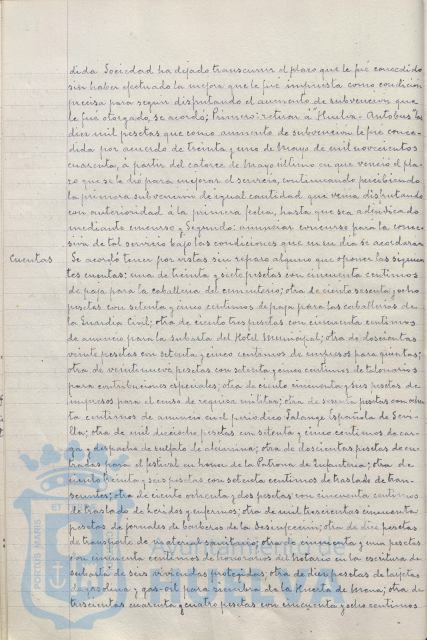 dida Sociedad ha dejado transcurrir el plazo que le fué concedido
sin haber efectuado la mejora que le fue impuesta como condición
precisa para seguir disfrutando el aumento de subvención que
le fué otorgado, se acordó; Primero: retirar á "Huelva-Autobus" las
diez mil pesetas que como aumento de subvención le fué conce-
dida por acuerdo de treinta y uno de Mayo de mil novecientos
cuarenta, á partir del catorce de Mayo último en que venció el pla-
zo que se le dió para mejorar el servicio, continuando percibiendo
la primera subvención de igual cantidad que venía disfrutando
con anterioridad á la primera fecha, hasta que sea adjudicado
mediante concurso y Segundo: anunciar concurso para la conce-
sión de tal servicio bajo las condiciones que en su día se acordaran
Cuentas
Se acordó tener por vistas sin reparo alguno que oponer las siguien-
tes cuentas; una de treinta y siete pesetas con cincuenta centimos
de paja para la caballeria del cementerio; otra de ciento sesenta y ocho
pesetas con setenta y cinco centimos de paja para las caballerias de
la Guardia Civil; otra de ciento tres pesetas con cincuenta centimos
de anuncio para la subasta del Hotel Municipal; otra de doscientas
veinte pesetas con setenta y cinco centimos de impresos para quintas;
otra de veintinueve pesetas con setenta y cinco centimos de talonarios
para contribuciones especiales; otra de ciento cincuenta y seis pesetas de
impresos para el censo de requisa militar; otra de sesenta pesetas con ochen-
ta centimos de anuncio en el periodico Falange Española de Sevi-
lla; otra de mil dieciocho pesetas con setenta y cinco centimos de car-
ga y despacho de sulfato de alumina; otra de doscientas pesetas de en-
tradas para el festival en honor de la Patrona de Infanteria; otra de
ciento treinta y seis pesetas con setenta centimos de traslado de tran-
seuntes; otra de ciento ochenta y dos pesetas con cincuenta centimos
de traslado de heridos y enfermos; otra de mil trescientas cincuenta
pesetas de jornales de barberos de la desinfección; otra de diez pesetas
de transporte de material sanitario; otra de cincuenta y una pesetas
con cincuenta centimos de honorarios del Notario en la escritura de
subasta de seis viviendas protegidas; otra de diez pesetas de tarjetas
de gasolina y gas-oil para siembra de la Huerta de Mena; otra de
trescientas cuarenta y cuatro pesetas con cincuenta y ocho centimos
PORTUS MARIS ET